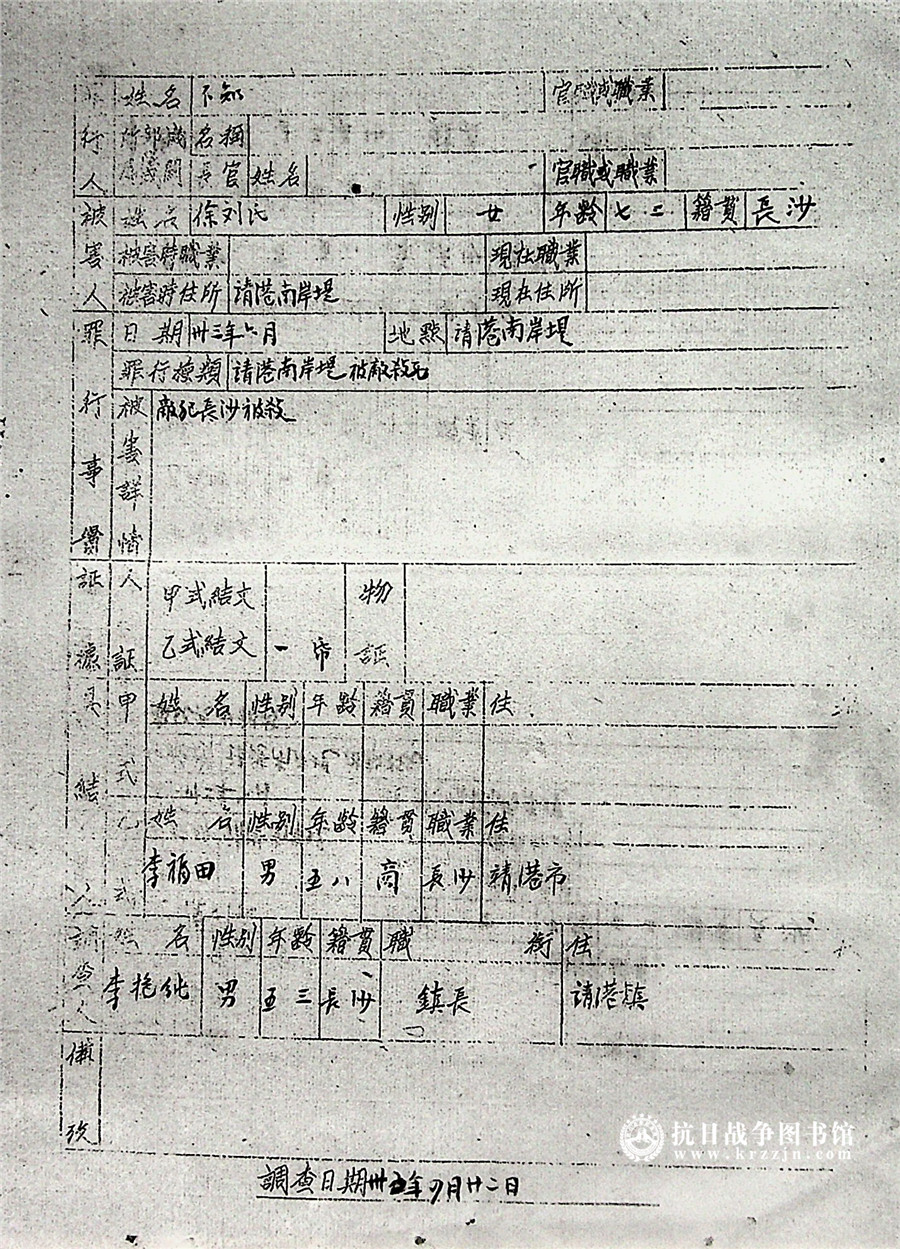 行人 姓名 不知 官職或職業
所部或 名稱
屬機關 長官 姓名 官職或職業
被害人 姓名 徐刘氏 性别 女 年齡 七二 籍貫 長沙
被害時職業 現在職業
被害時住所 請港南岸堤 現在住所
罪行事實 日期 卅三年六月 地點 請港南岸堤
罪行種類 請港南岸堤被敵殺死
被害詳情 敵犯長沙被殺
証據 人証 甲式結文 物証
乙式結文 一帋
具結人 甲式 姓名 性别 年齡 籍貫 職業 住
乙式 姓名 性别 年齡 籍貫 職業 住
李福田 男 五八 商 長沙 靖港市
調查人 姓名 性别 年齡 籍貫 職銜 住
李 男 五三 長沙 鎮長 請港鎮
備攷
調查日期卅五年四月廿二日
抗日战争图书馆
www.krzzjn.com